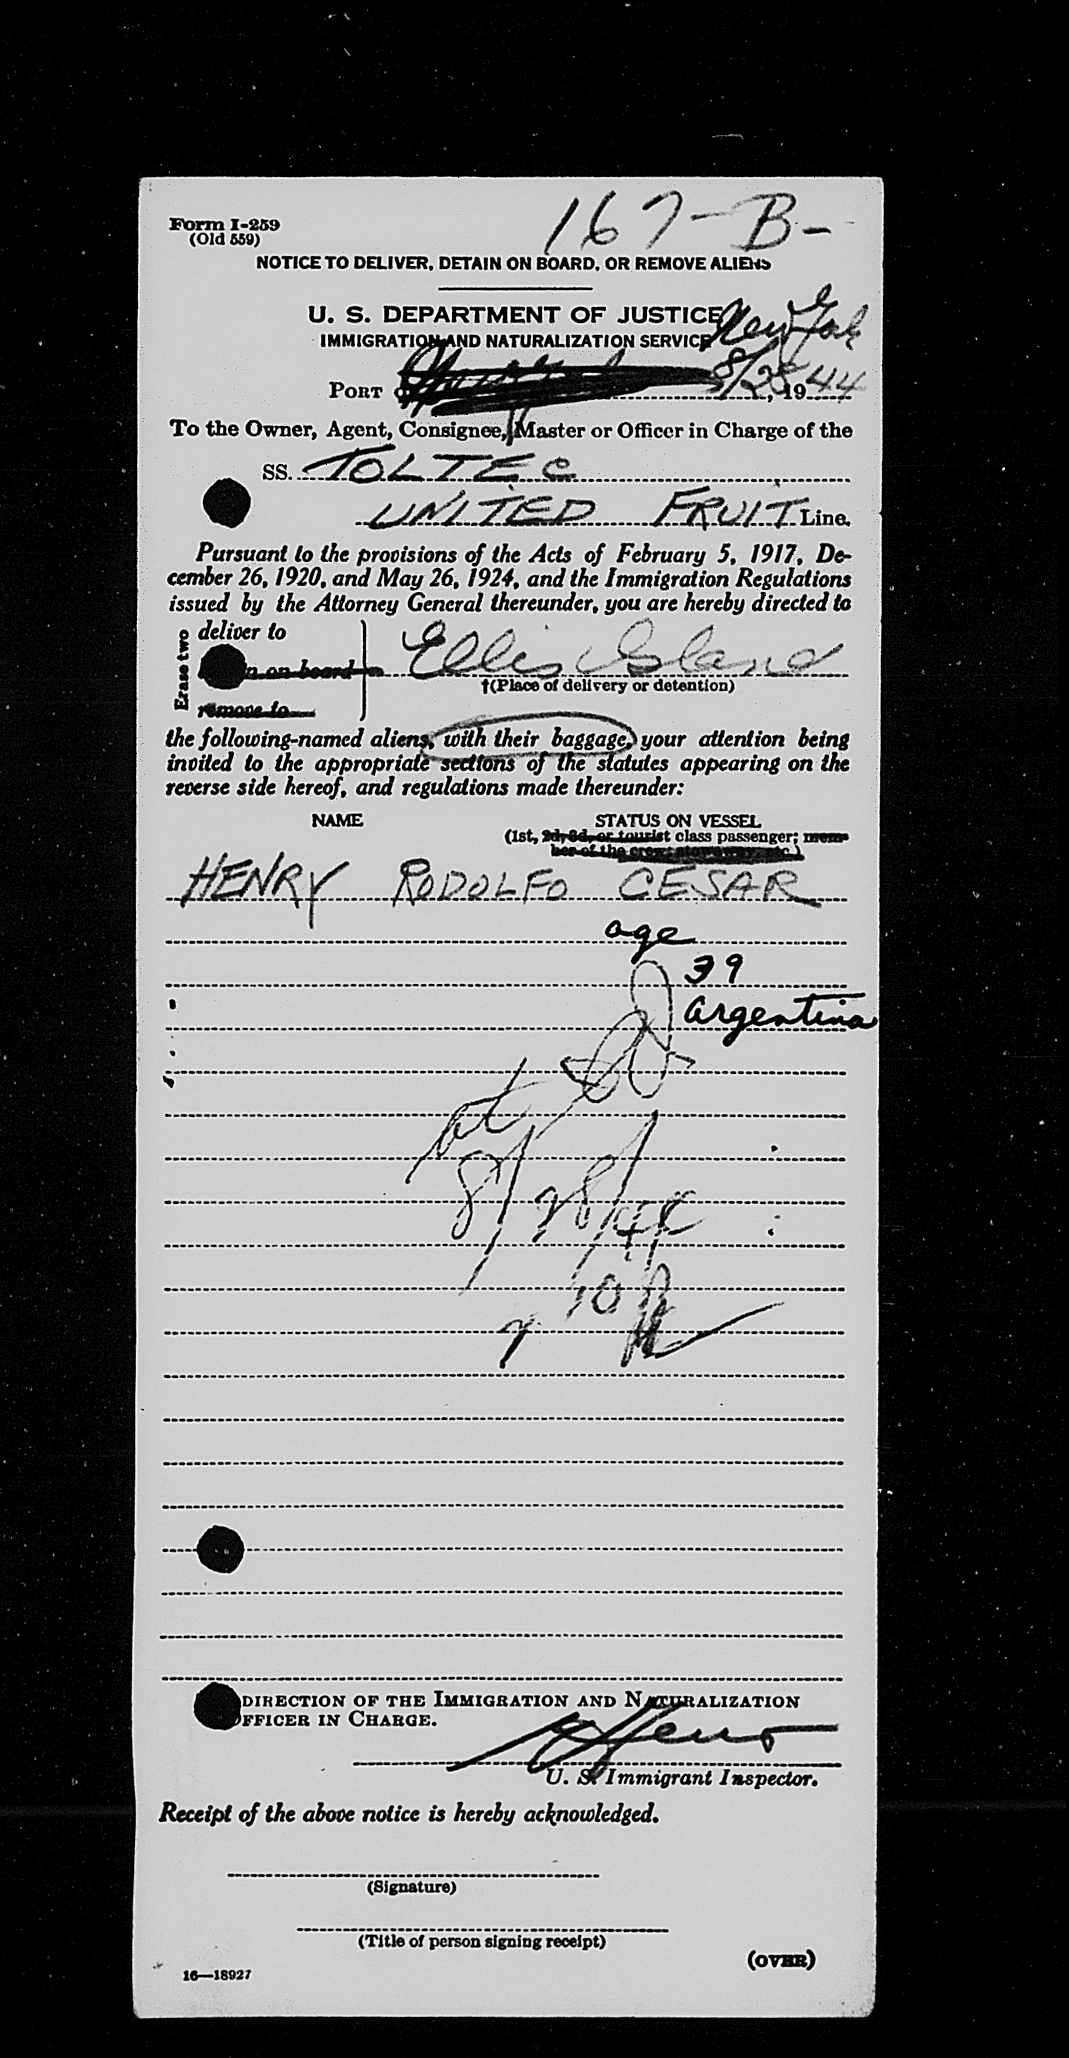 167-B-
Form I-259
(Old 559)
NOTICE TO DELIVER, DETAIN ON BOARD, OR REMOVE ALIENS
U. S. DEPARTMENT OF JUSTICE
IMMIGRATION AND NATURALIZATION SERVICE New York
PORT 8/28, 1944
To the Owner, Agent, Consignee, Master or Officer in Charge of the
SS. TOLTEC
UNITED FRUIT Line.
Pursuant to the provisions of the Acts of February 5, 1917, De-
cember 26, 1920, and May 26, 1924, and the Immigration Regulations
issued by the Attorney General thereunder, you are hereby directed to
Erase two
deliver to
n on board Ellis Island
†(Place of delivery or detention)
remove to
the following-named aliens, with their baggage, your attention being
invited to the appropriate sections of the statutes appearing on the
reverse side hereof, and regulations made thereunder:
NAME STATUS ON VESSEL
(1st, 2d, 3d, or tourist class passenger; mem-
ber of the crew; stowaway, etc.)
HENRY RODOLFO CESAR
age
39
Argentina
at
8/28/44
10
DIRECTION OF THE IMMIGRATION AND NATURALIZATION
FFICER IN CHARGE.
U. S. Immigrant Inspector.
Receipt of the above notice is hereby acknowledged.
(Signature)
(Title of person signing receipt)
(OVER)
16—18927